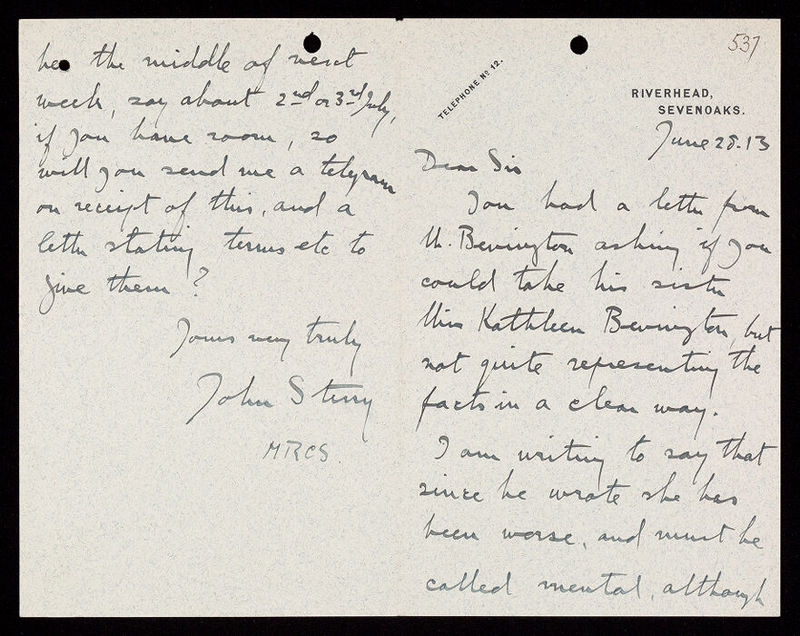 537
TELEPHONE No 12.
RIVERHEAD,
SEVENOAKS.
June 28.13
Dear Sir
You had a letter from
Mr. Bevington asking if you
could take his sister
Miss Kathleen Bevington, but
not quite representing the
facts in a clear way.
I am writing to say that
since he wrote she has
been worse, and must be
called mental, although
the middle of next
week, say about 2nd or 3rd July,
if you have room, so
will you send me a telegram
on receipt of this, and a
letter stating terms etc to
give them?
Yours very truly
John Sterry
MRCS.